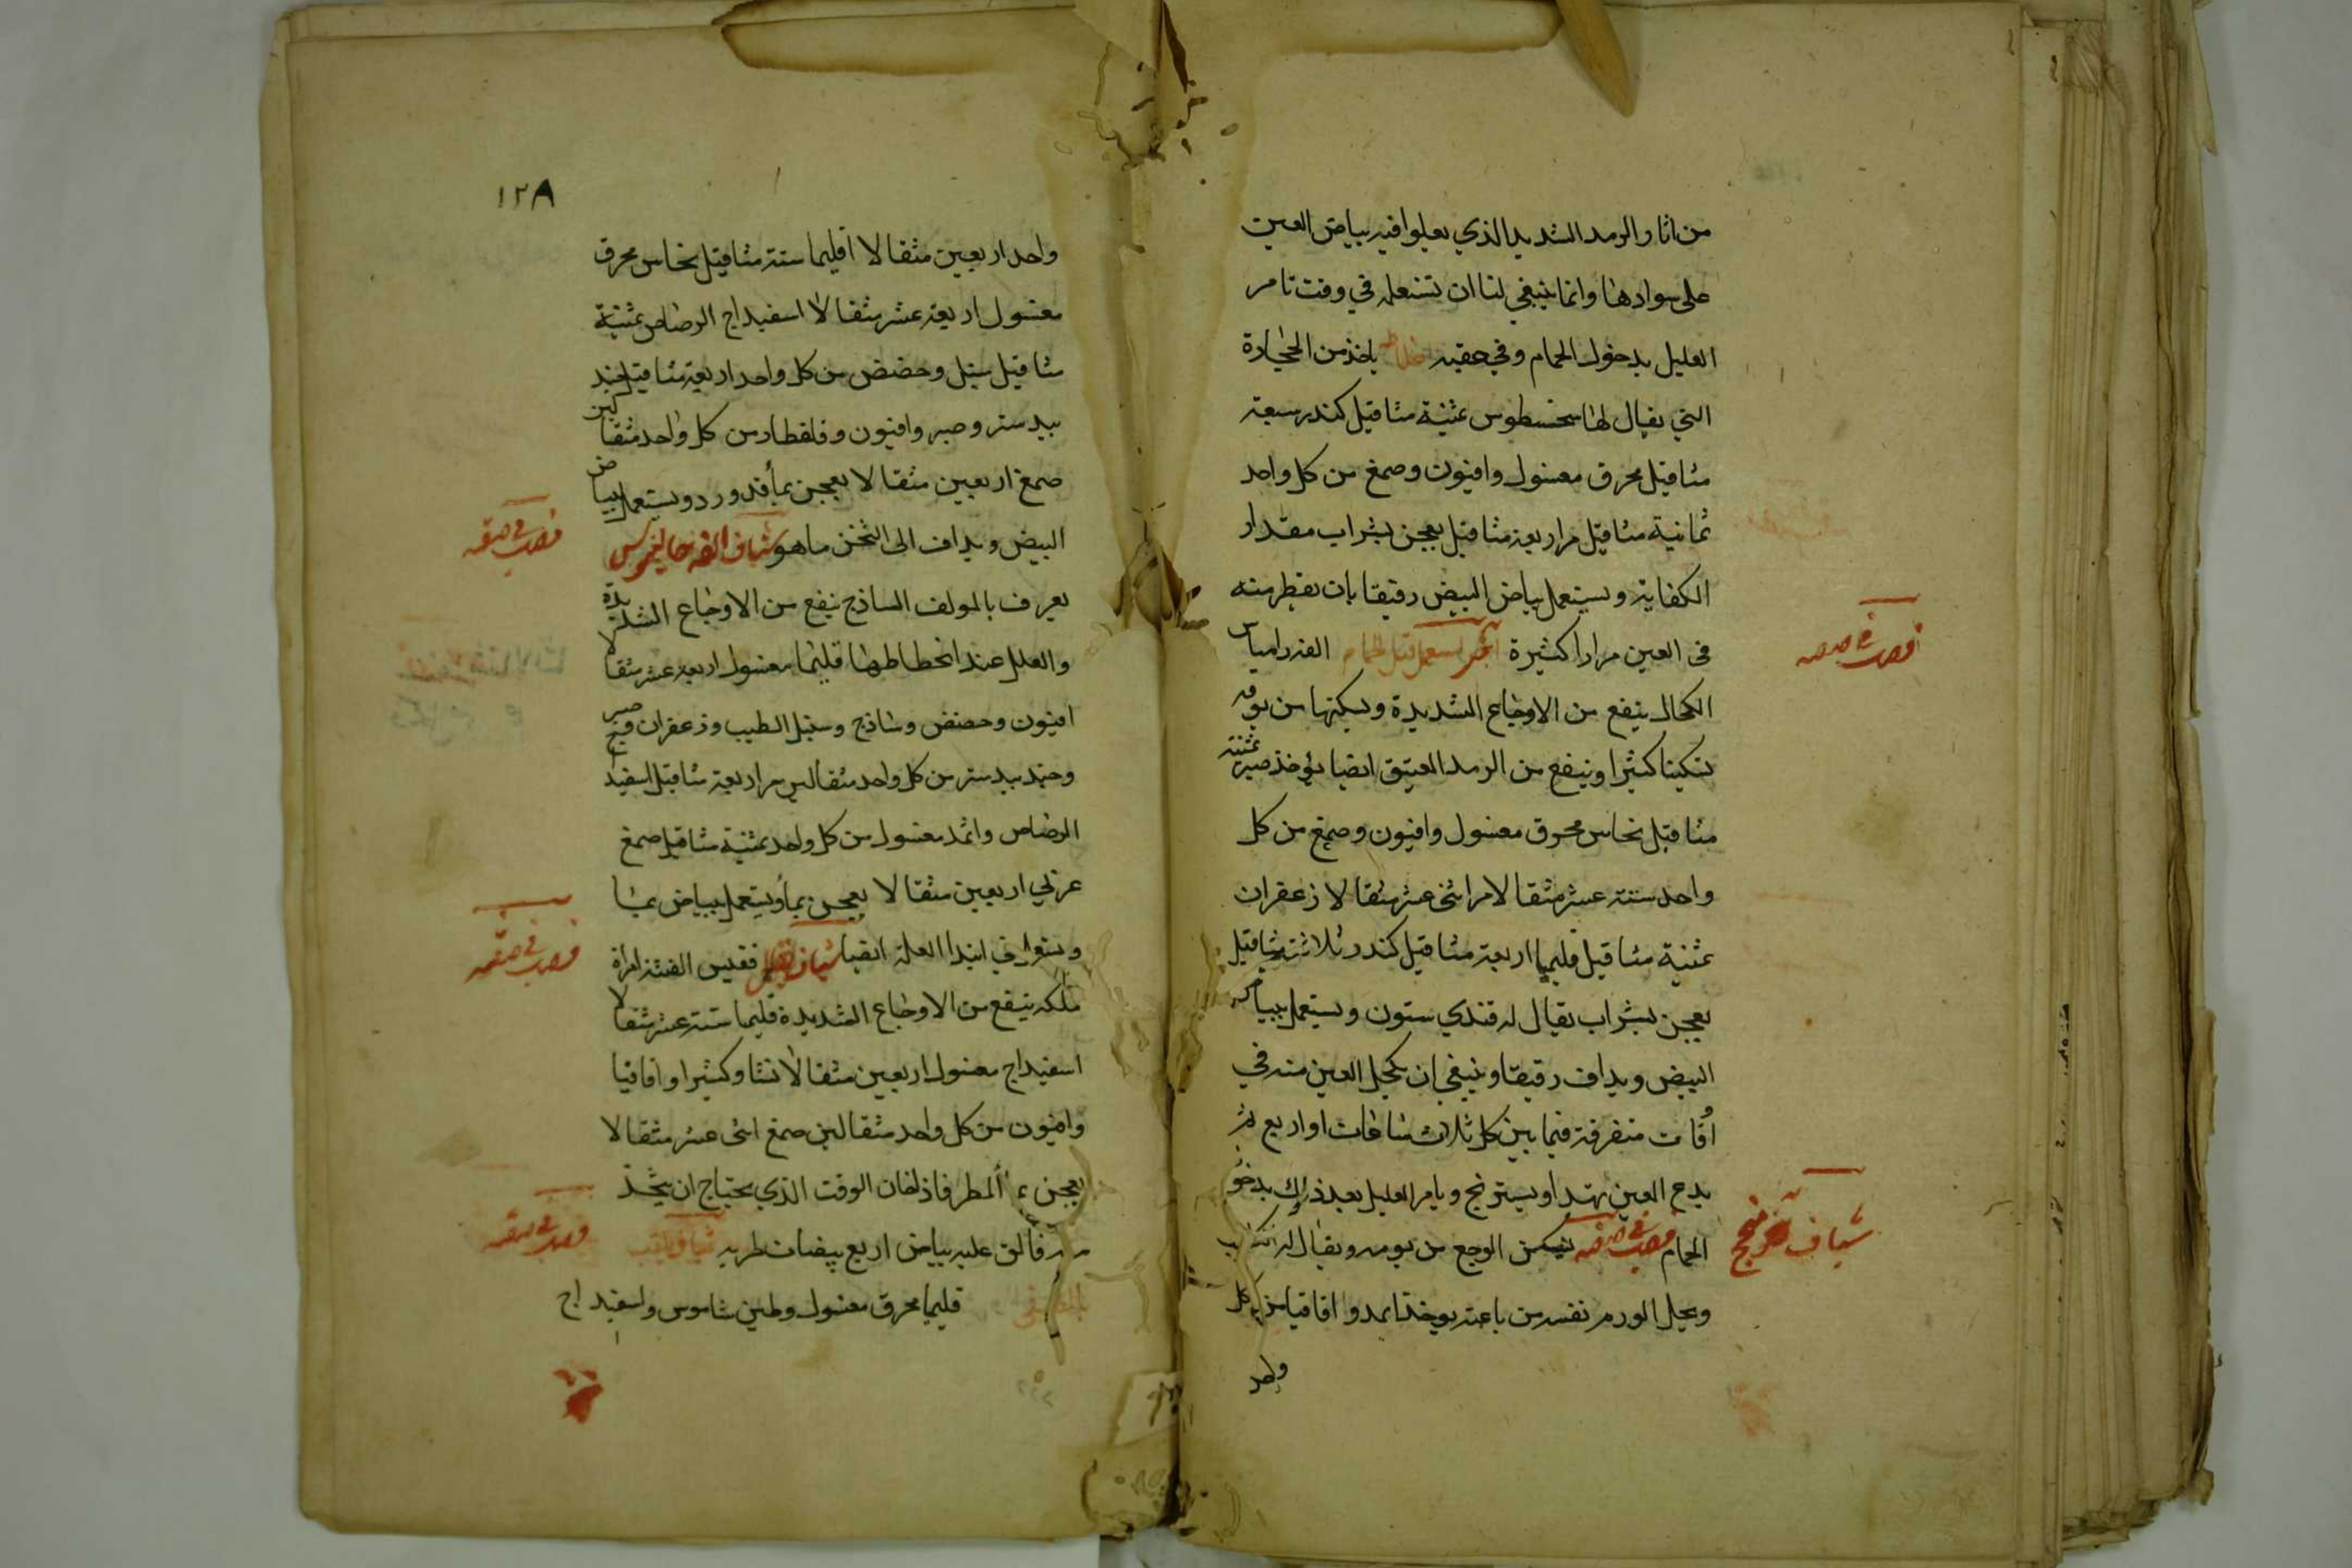 من اثار والرمد الشديد الذي يعلوا فيه بياض العين
على سوادها وانما ينبغي لنا ان نستعمله في وقت تامر
العليل بدخول الحمام وفي عقبه اخلاطه ياخذ من الحجارة
التي يقال لها سخسطوس ثمنية مثاقيل كندر سبعة
مثاقيل محرق مغسول وافيون وصمغ من كل واحد
ثمانية مثاقيل مر اربعة مثاقيل يعجن بشراب مقدار
الكفاية ويستعمل ببياض البيض رقيقا بان يقطر منه
في العين مرارا كثيرة اخر يستعمل قبل الحمام
الكحال ينفع من الاوجاع الشديدة ويسكنها من يومه
تسكينا كثيرا وينفع من الرمد العتيق ايضا يؤخذ صبر ثمنية
مثاقيل نحاس محرق مغسول وافيون وصمغ من كل
واحد ستة عشر مثقالا مر اثنى عشر مثقالا زعفران
ثمنية مثاقيل قليميا اربعة مثاقيل كندر ثلاثة مثاقيل
يعجن بشراب يقال له قندي ستون ويستعمل ببياض
البيض ويداف رقيقا وينبغي ان يكحل العين منه في
اوقات متفرقة فيما بين كل ثلاث ساعات او اربع ثم
يدع العين تهدا ويستريح ويامر العليل بعد ذلك بدخول
الحمام قرصب في صفه يسكن الوجع من يومه ويقال له
ويحل الورم نفسه من باعته يوخذ اثمد واقاقيا من كل
واحد
قرصب في صفه
شياف
١٢٨
واحد اربعين مثقالا اقليميا ستة مثاقيل نحاس محرق
مغسول اربعة عشر مثقالا اسفيداج الرصاص ثمنية
مثاقيل سنبل وحضض من كل واحد اربعة مثاقيل جند
بيدستر وصبر وافيون وقلقطار من كل واحد مثقالين
صمغ اربعين مثقالا يعجن بماء قد ورد ويستعمل ببياض
البيض ويداف الى الثخن ماهو شياف الفه جالينوس
يعرف بالمولف الساذج ينفع من الاوجاع الشديدة
والعلل عند انحطاطها قليميا مغسول اربعة عشر مثقالا
افيون وحضض وشاذج وسنبل الطيب وزعفران وصبر
وجند بيدستر من كل واحد مثقالين مر اربعة مثاقيل اسفيداج
الرصاص واثمد مغسول من كل واحد ثمنية مثاقيل صمغ
عربي اربعين مثقالا يعجن بماء ويستعمل ببياض
في ابتدا العلة ايضا شياف الفته امراة
ملكه ينفع من الاوجاع الشديدة قليميا ستة عشر مثقالا
اسفيداج مغسول اربعين مثقالا نشا وكثيرا واقاقيا
وافيون من كل واحد مثقالين صمغ اثنى عشر مثقالا
يعجن بماء المطر فاذا كان الوقت الذي يحتاج ان يتخذ
فالق عليه بياض اربع بيضات طريه شياف يلقب
قليميا محرق مغسول وطين شاموس واسفيداج
قرصب في صفه
قرصب في صفه
قرصب في صفه